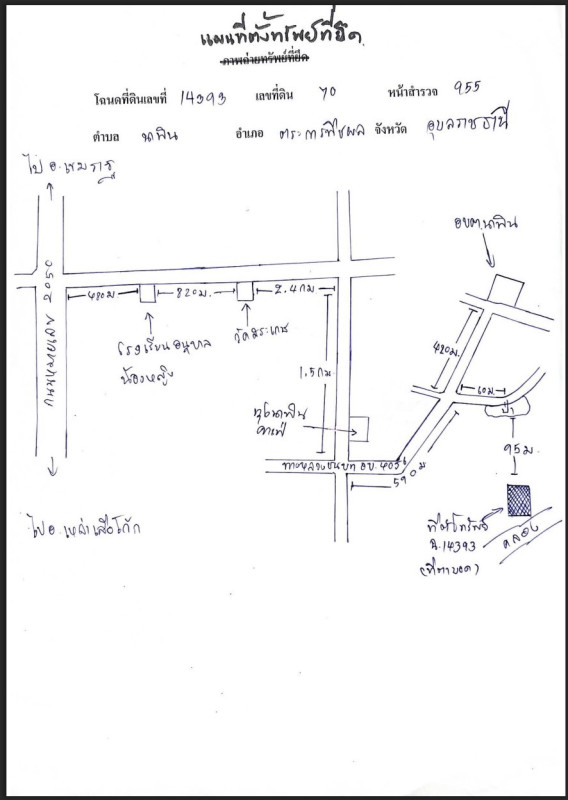 แผนที่ตั้งทรัพย์ที่ยึด
ภาพถ่ายทรัพย์ที่ยึด
โฉนดที่ดินเลขที่ 14393 เลขที่ดิน 70 หน้าสำรวจ 955
ตำบล นาพิน อำเภอ ตระการพืชผล จังหวัด อุบลราชธานี
ไป อ.เขมราฐ
อบต.นาพิน
ถนนหมายเลข 2050
480ม.
820ม.
2.4กม
โรงเรียนอนุบาล
น้องหญิง
วัดสระเกษ
1.5กม
420ม.
60ม.
ป่า
95ม.
นาพิน
คาเฟ่
ทางหลวงชนบท อบ.4056
590ม
ไป อ.เหล่าเสือโก้ก
ที่ตั้งทรัพย์
ฉ.14393
(ที่ตาบอด)
คลอง